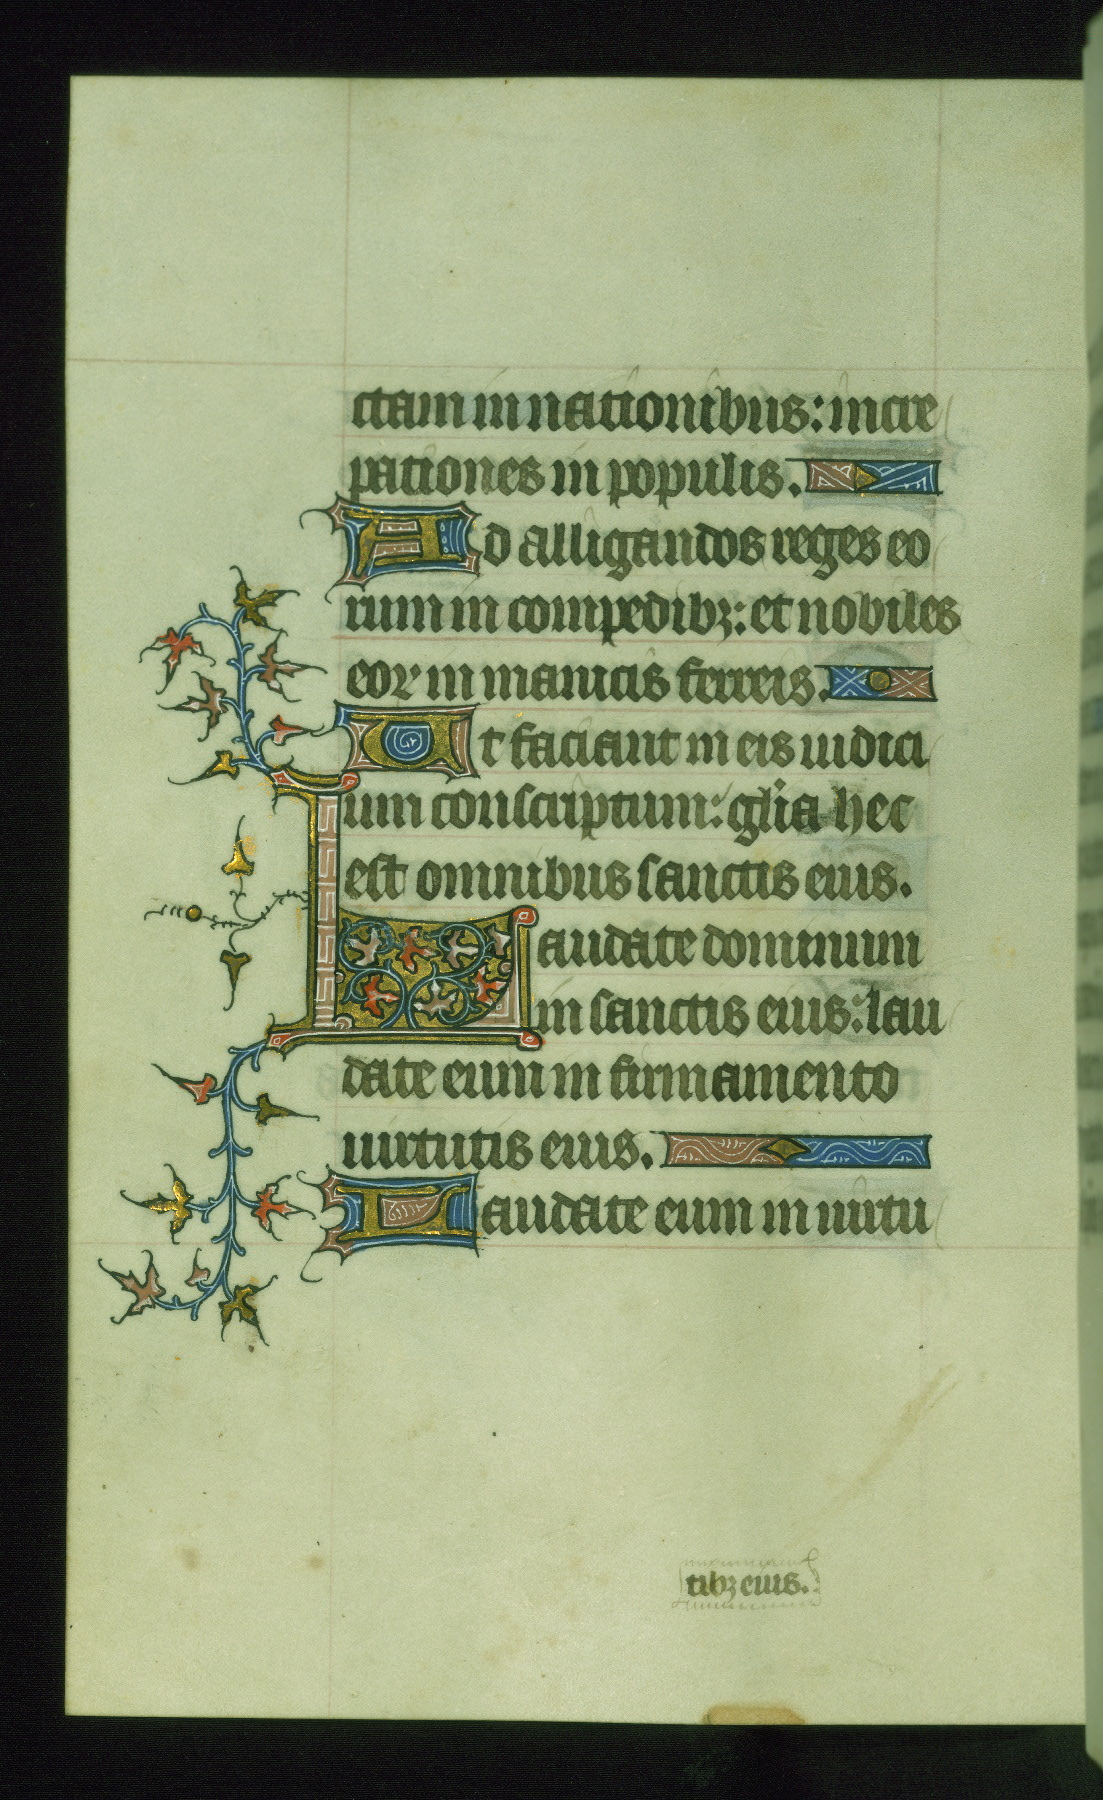 ctam in nationibus: incre
pationes in populis.
Ad alligandos reges eo
rum in compedibꝫ: et nobiles
eoꝝ in manicis ferreis.
Ut faciant in eis iudici
um conscriptum: glia hec
est omnibus sanctis eius.
Laudate dominum
in sanctis eius: lau
date eum in firmamento
uirtutis eius.
Laudate eum in uirtu
tibꝫ eius.